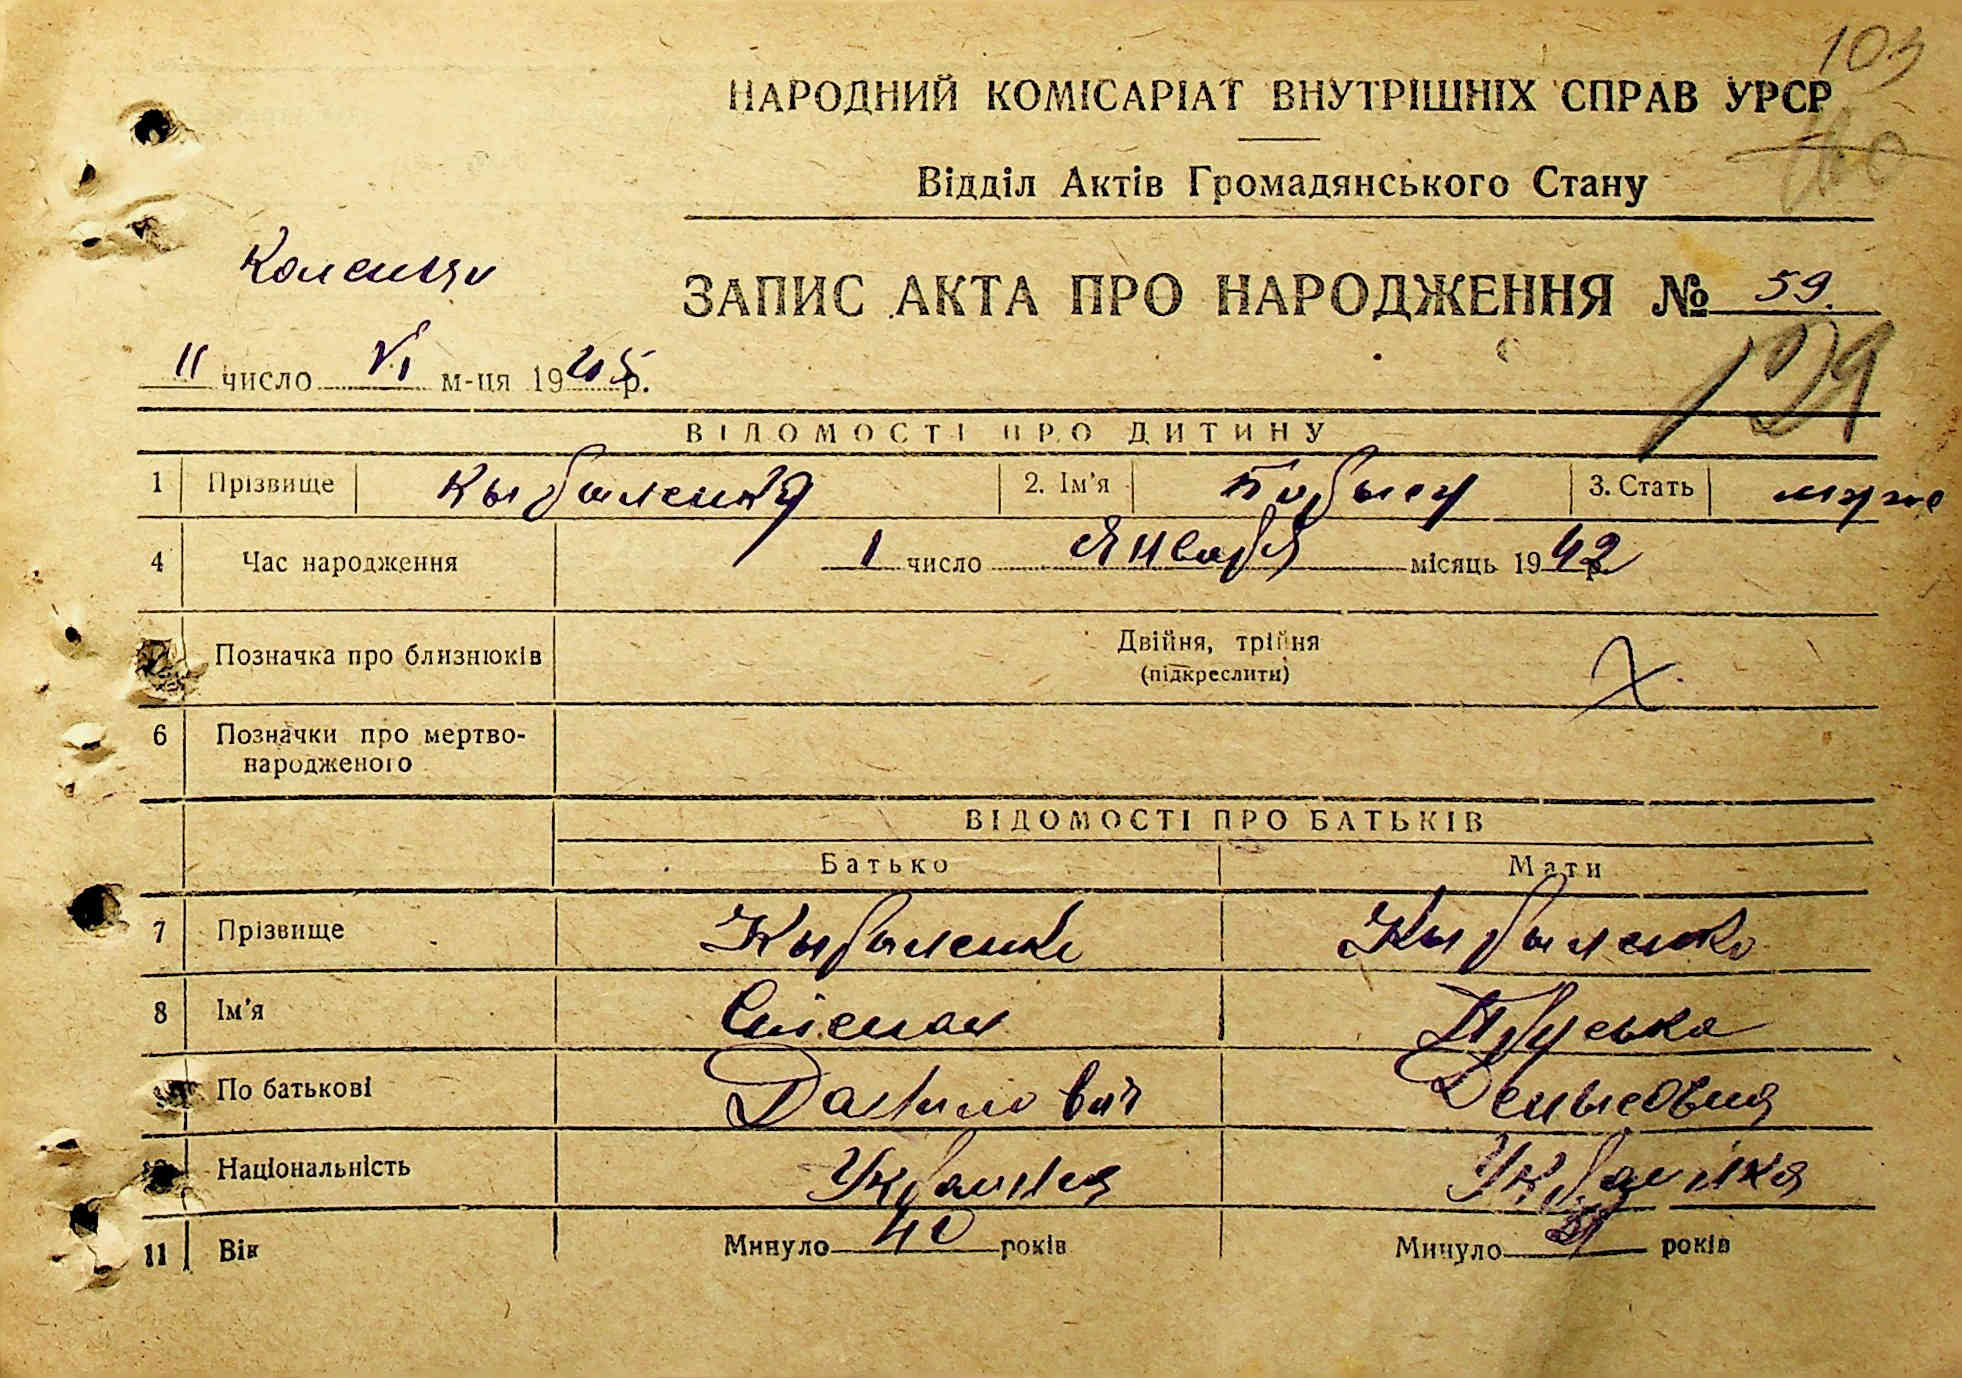 103
НАРОДНИЙ КОМІСАРІАТ ВНУТРІШНІХ СПРАВ УРСР
Відділ Актів Громадянського Стану
ЗАПИС АКТА ПРО НАРОДЖЕННЯ № 59.
11 число VI м-ця 1945 р.
129
ВІДОМОСТІ ПРО ДИТИНУ
1 Прізвище 2. Ім'я 3. Стать
4 Час народження 1 число Января місяць 1942 р.
Позначка про близнюків Двійня, трійня
(підкреслити)
6 Позначки про мертво-
народженого
ВІДОМОСТІ ПРО БАТЬКІВ
Батько Мати
7 Прізвище Кырыленко Кырыленко
8 Ім'я Степан
По батькові Данилович Денысовна
Національність
11 Вік Минуло 40 років Минуло років